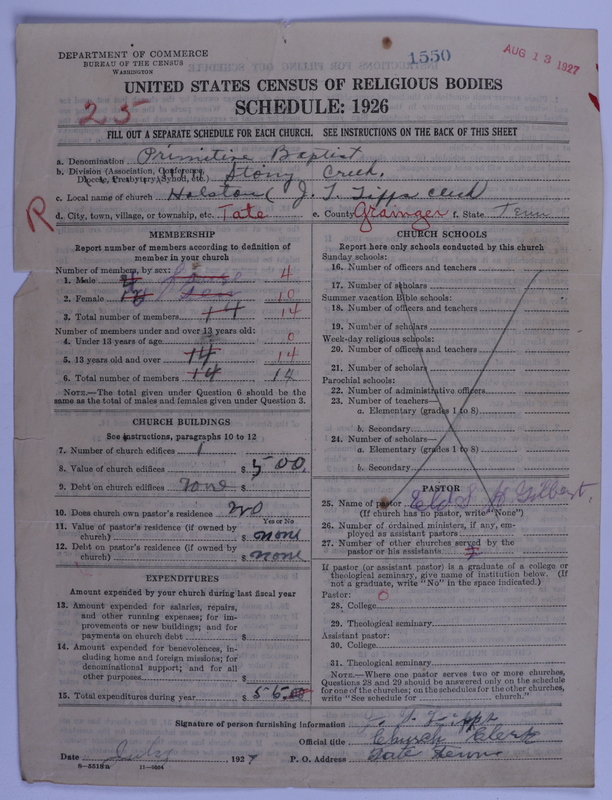 DEPARTMENT OF COMMERCE
BUREAU OF THE CENSUS
WASHINGTON
1550
AUG 13 1927
UNITED STATES CENSUS OF RELIGIOUS BODIES
SCHEDULE: 1926
25
FILL OUT A SEPARATE SCHEDULE FOR EACH CHURCH. SEE INSTRUCTIONS ON THE BACK OF THIS SHEET
a. Denomination Primitive Baptist
b. Division (Association, Conference, Diocese, Presbytery, Synod, etc.) Stony Creek.
c. Local name of church Holston ( J. T. Tipps clerk
R
d. City, town, village, or township, etc. Tate e. County Grainger f. State Tenn
MEMBERSHIP
Report number of members according to definition of
member in your church
Number of members, by sex:
1. Male 4
2. Female 10
3. Total number of members 14 14
Number of members under and over 13 years old:
4. Under 13 years of age 0
5. 13 years old and over 14 14
6. Total number of members 14 14
NOTE.—The total given under Question 6 should be
same as the total of males and females given under Question 3.
CHURCH BUILDINGS
See instructions, paragraphs 10 to 12
7. Number of church edifices 1
8. Value of church edifices $ 500.
9. Debt on church edifices none $
10. Does church own pastor's residence no
Yes or No
11. Value of pastor's residence (if owned by
church) $ none
12. Debt on pastor's residence (if owned by
church) $ none
EXPENDITURES
Amount expended by your church during last fiscal year
13. Amount expended for salaries, repairs,
and other running expenses; for im-
provements or new buildings; and for
payments on church debt $
14. Amount expended for benevolences, in-
cluding home and foreign missions; for
denominational support; and for all
other purposes $
15. Total expenditures during year $ 56.00
CHURCH SCHOOLS
Report here only schools conducted by this church
Sunday schools:
16. Number of officers and teachers
17. Number of scholars
Summer vacation Bible schools:
18. Number of officers and teachers
19. Number of scholars
Week-day religious schools:
20. Number of officers and teachers
21. Number of scholars
Parochial schools:
22. Number of administrative officers
23. Number of teachers—
a. Elementary (grades 1 to 8)
b. Secondary
24. Number of scholars—
a. Elementary (grades 1 to 8)
b. Secondary
PASTOR
25. Name of pastor Eld S H Gilbert
(If church has no pastor, write "None")
26. Number of ordained ministers, if any, em-
ployed as assistant pastors
27. Number of other churches served by the
pastor or his assistants
If pastor (or assistant pastor) is a graduate of a college or
theological seminary, give name of institution below. (If
not a graduate, write "No" in the space indicated.)
Pastor: 0
28. College
29. Theological seminary
Assistant pastor:
30. College
31. Theological seminary
NOTE.—Where one pastor serves two or more churches,
Questions 28 and 29 should be answered only on the schedule
for one of the churches; on the schedules for the other churches,
write "See schedule for church."
Signature of person furnishing information J. T. Tipps
Official title Church Clerk
Date July, 1927 P. O. Address Tate Tenn
8-5518a 11-9504